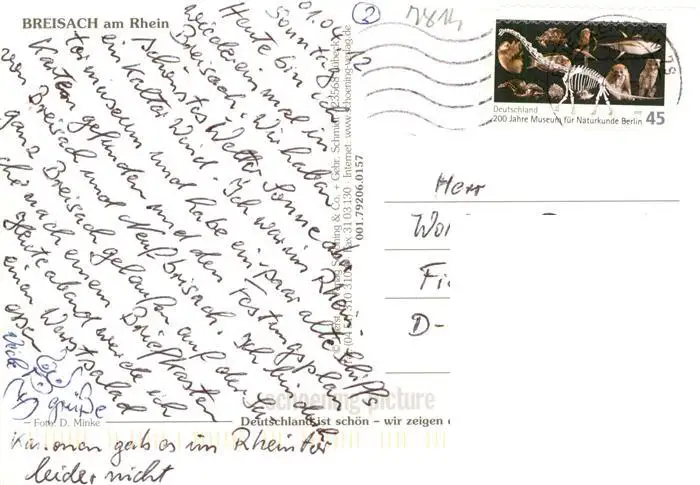 BREISACH am Rhein
01.04.12
Sonntag
Heute bin ich
wieder einmal in
Breisach. Wir haben
schönstes Wetter Sonne aber
ein kalter Wind. Ich war im Rhein
tormuseum und habe ein paar alte Schiffs
Karten gefunden und den Festungsplan
von Breisach und Neuf Brisach. Ich bin durch
ganz Breisach gelaufen auf der Su
che nach einem Briefkasten
Heute abend werde ich
einen Wurstsalat
essen
Viele
grüße
Kanonen gab es im Rheintor
leider nicht
Foto: D. Minke
Schöning & Co. + Gebr. Schmidt
23568 Lübeck
Internet: www.schoening-verlag.de
001.79206.0157
schoening picture
Deutschland ist schön – wir zeigen
2
7814
Deutschland
200 Jahre Museum für Naturkunde Berlin
45
Herr
D-